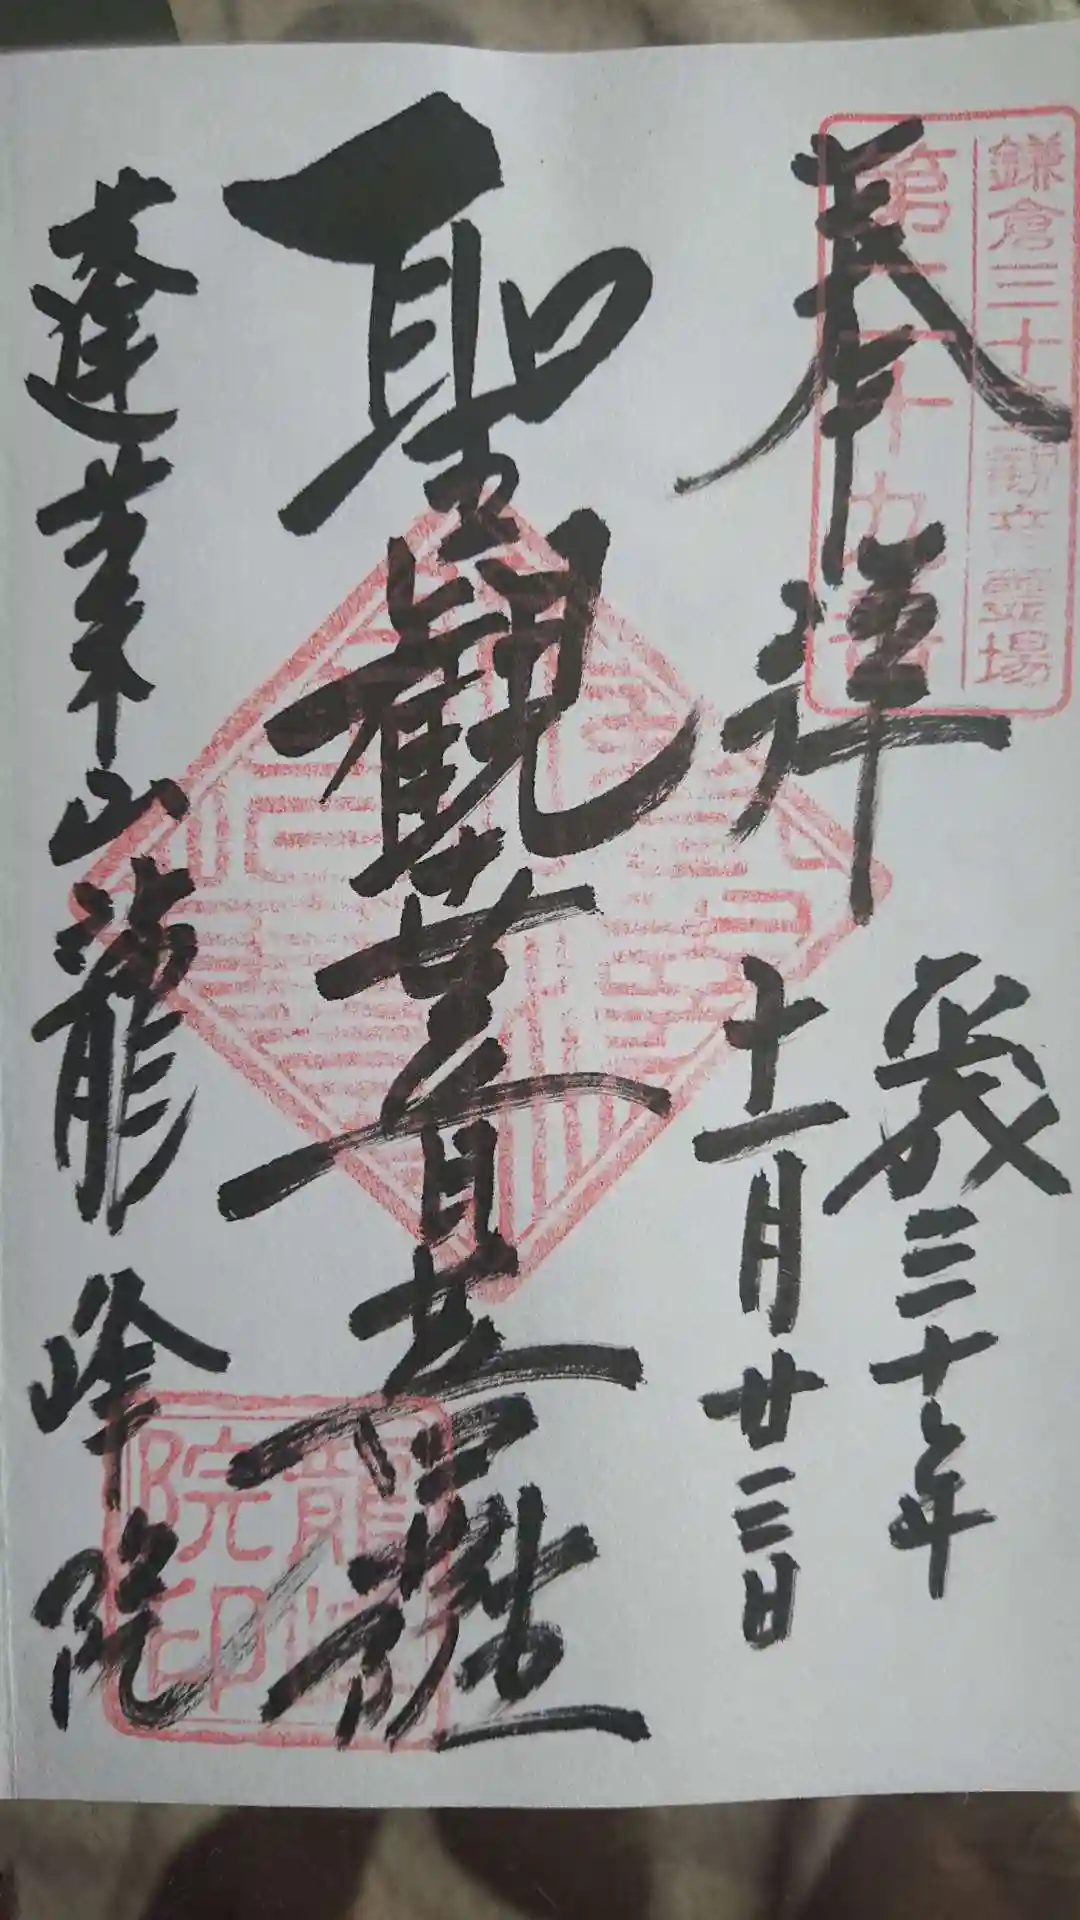 鎌倉三十三観音霊場
第二十九番
奉拝
平成三十年
十一月廿三日
聖観世音菩薩
蓬莱山龍峰院
龍峰院印